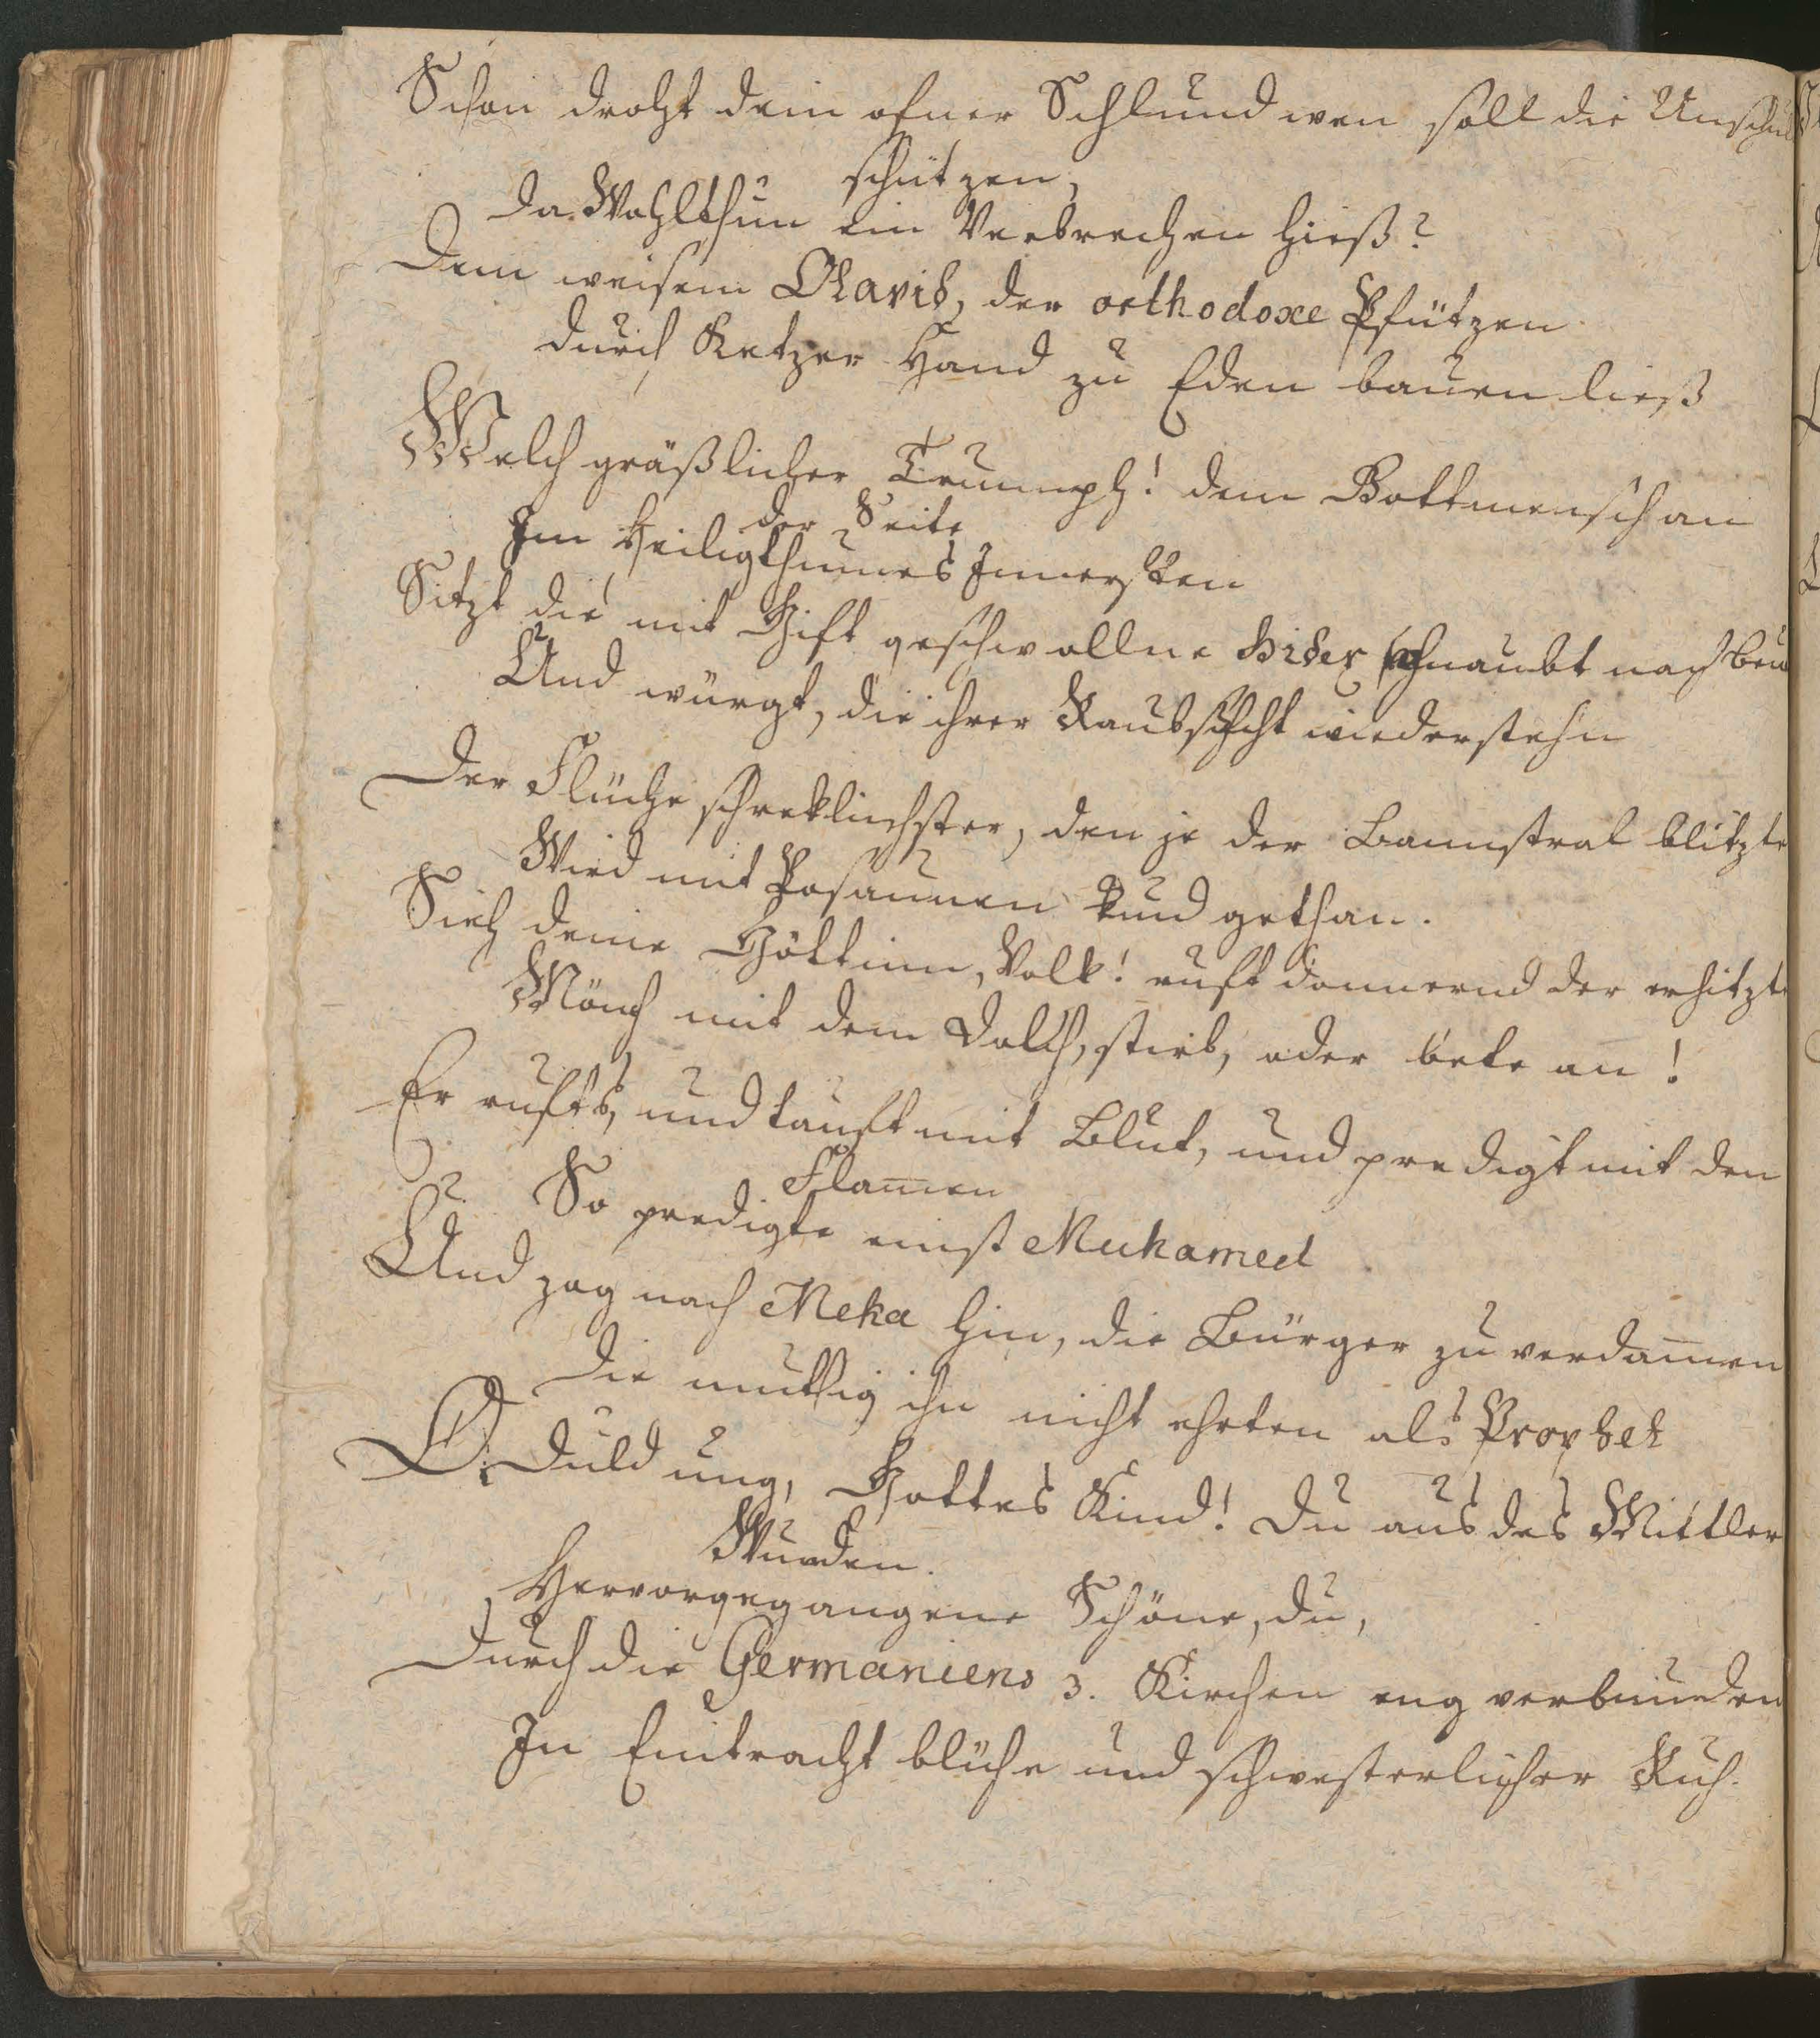 Schon droht dein ofner Schlund wen soll die Unschul
schützen,
Da Wohlthun ein Verbrechen hieß?
Dem weisem Olavid, der orthodoxe Pfützen
durch Ketzer Hand zu Eden bauen ließ
Welch gräßlicher Triumph! dem Gottmensch an
der Seite
Im Heiligthumes Innersten
Sitzt die mit Gift geschwollne schnaubt nach Beu
Und würgt, die ihrer Raubsucht wiederstehn
Der Flüche schreklichster, den je der Bannstral blitzte
Wird mit Posaunen kund gethan.
Sieh deine Göttinn, Volk! ruft donnernd der erhitzte
Mönch mit dem Dolch, stirb, oder bete an!
Er rufts, und tauft mit Blut, und predigt mit den
Flam̅en
So predigte einst Muhamed
Und zog nach Meka hin, die Bürger zu verdam̅en
Die muthig ihn nicht ehrten als Prophet
O. Duldung, Gottes Kind! Du aus des Mittler
Wunden.
Hervorgegangene Schöne, du,
Durch die Germaniens 3. Kirchen eng verbunden
In Eintracht blühn und schwesterlicher Ruh.